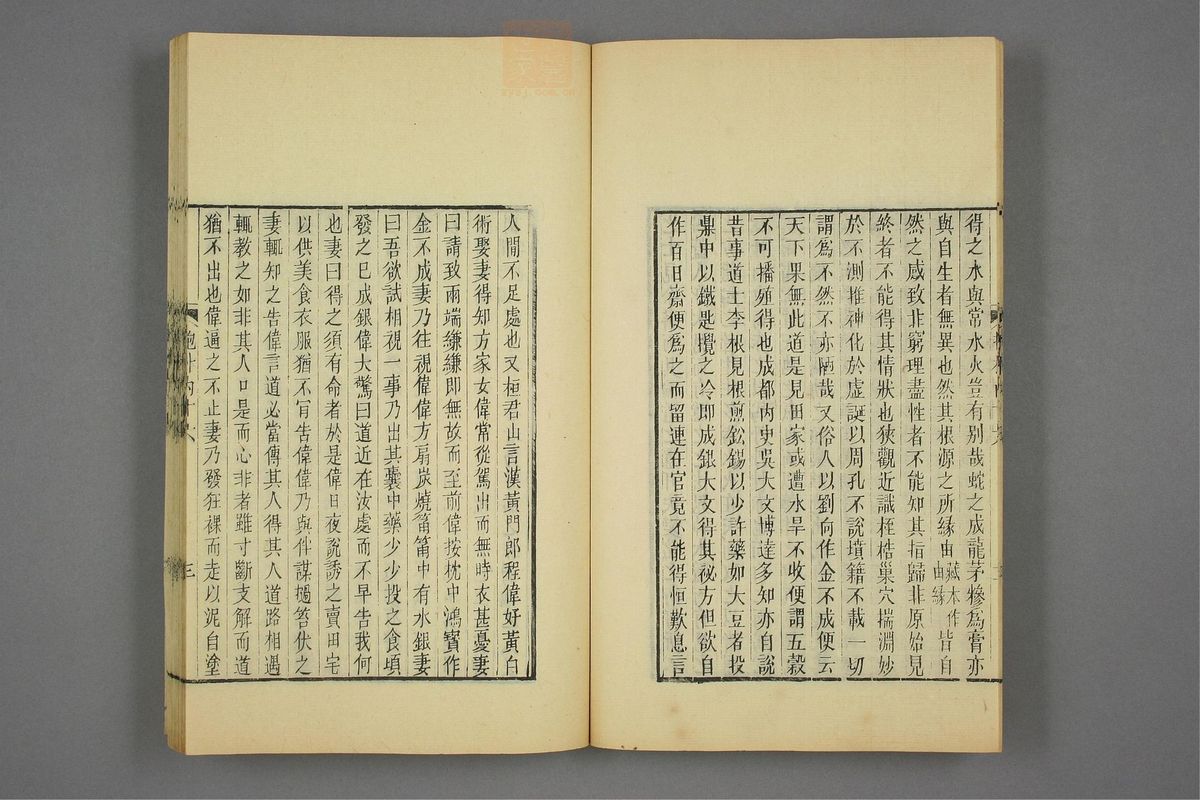 得之水與常水火豈有别哉蛇之成龍茅糝爲膏亦
與自生者無異也然其根源之所緣由藏本作由緣皆自
然之感致非窮理盡性者不能知其指歸非原始見
終者不能得其情狀也狹觀近識桎梏巢穴揣淵妙
於不測推神化於虛誕以周孔不說墳籍不載一切
謂爲不然不亦陋哉又俗人以劉向作金不成便云
天下果無此道是見田家或遭水旱不收便謂五穀
不可播殖得也成都内史吳大文博達多知亦自說
昔事道士李根見根煎鈆錫以少許藥如大豆者投
鼎中以鐵匙攪之冷即成銀大文得其祕方但欲自
作百日齋便爲之而留連在官竟不能得恒歎息言
人間不足處也又桓君山言漢黃門郎程偉好黃白
術娶妻得知方家女偉常從駕出而無時衣甚憂妻
曰請致兩端縑縑即無故而至前偉按枕中鴻寶作
金不成妻乃往視偉偉方扇炭燒筩筩中有水銀妻
曰吾欲試相視一事乃出其囊中藥少少投之食頃
發之已成銀偉大驚曰道近在汝處而不早告我何
也妻曰得之須有命者於是偉日夜說誘之賣田宅
以供美食衣服猶不肎告偉偉乃與伴謀撾笞伏之
妻輒知之告偉言道必當傳其人得其人道路相遇
輒教之如非其人口是而心非者雖寸斷支解而道
猶不出也偉逼之不止妻乃發狂裸而走以泥自塗
三